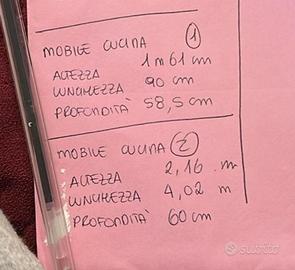 MOBILE CUCINA 1
ALTEZZA 1 m 61 cm
LUNGHEZZA 90 cm
PROFONDITÀ 58,5 cm
MOBILE CUCINA 2
ALTEZZA 2,16 m
LUNGHEZZA 4,02 m
PROFONDITÀ 60 cm
subito